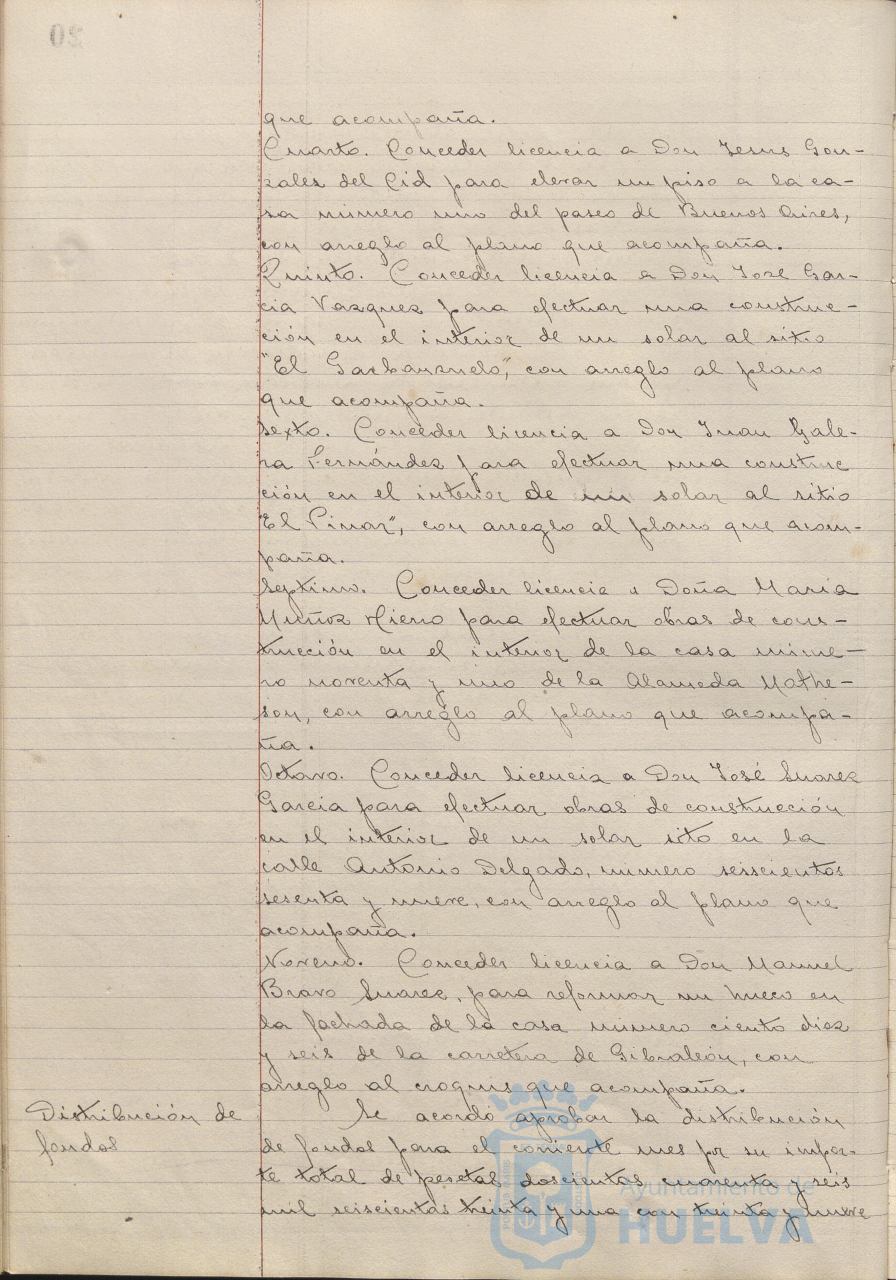 que acompaña.
Cuarto. Conceder licencia a Don Jesus Gon-
zales del Cid para elevar un piso a la ca-
sa número uno del paseo de Buenos Aires,
con arreglo al plano que acompaña.
Quinto. Conceder licencia a Don José Gar-
cia Vazquez para efectuar una construc-
ción en el interior de un solar al sitio
"El Garbanzuelo", con arreglo al plano
que acompaña.
Sexto. Conceder licencia a Don Juan Gale-
ra Fernández para efectuar una construc
ción en el interior de un solar al sitio
"El Pinar", con arreglo al plano que acom-
paña.
Septimo. Conceder licencia a Doña María
Muñoz Hierro para efectuar obras de cons-
trucción en el interior de la casa núme-
ro noventa y uno de la Alameda Mathe-
son, con arreglo al plano que acompa-
ña.
Octavo. Conceder licencia a Don José Suarez
Garcia para efectuar obras de construcción
en el interior de un solar sito en la
calle Antonio Delgado, número seiscientos
sesenta y nueve, con arreglo al plano que
acompaña.
Noveno. Conceder licencia a Don Manuel
Bravo Suarez, para reformar un hueco en
la fachada de la casa número ciento diez
y seis de la carretera de Gibraleón, con
arreglo al croquis que acompaña.
Distribución de
fondos
Se acordó aprobar la distribución
de fondos para el corriente mes por su impor-
te total de pesetas doscientas cuarenta y seis
mil seiscientas treinta y una con treinta y nueve
Ayuntamiento de
HUELVA